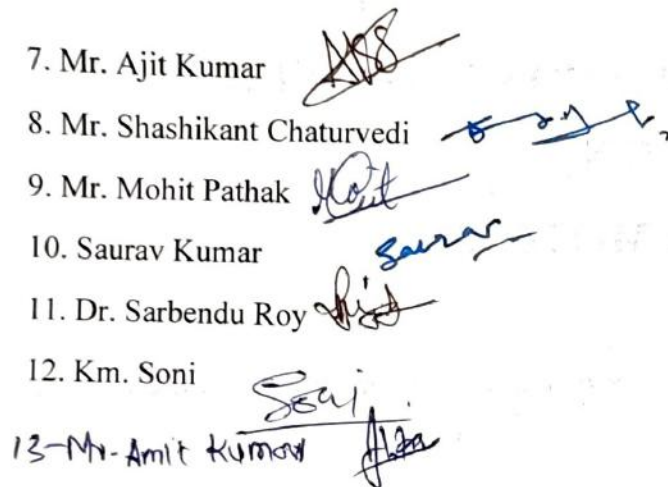 7. Mr. Ajit Kumar
8. Mr. Shashikant Chaturvedi
9. Mr. Mohit Pathak
10. Saurav Kumar Saurav
11. Dr. Sarbendu Roy
12. Km. Soni Soni
13-Mr. Amit Kumar